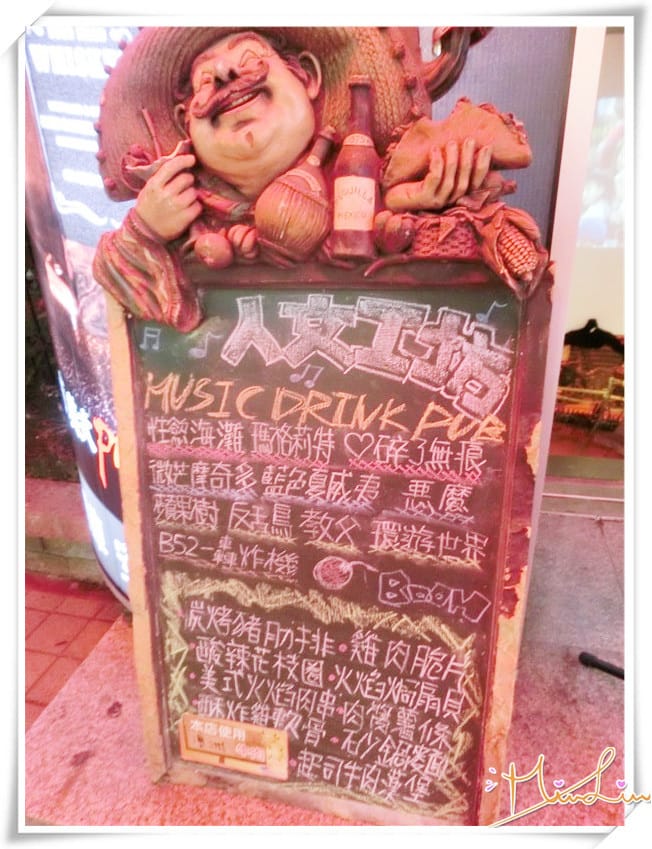 TEQUILLA
MEXICO
人文工坊
MUSIC DRINK PUB
性慾海灘 瑪格莉特 ♡碎了無痕
微苦摩奇多 藍色夏威夷 悪魔
蘋果樹 反舌鳥 教父 環遊世界
B52-轟炸機 BOOM
炭烤豬肋排·雞肉脆片
·酸辣花枝圈·火焰焗扇貝
·美式火焰肉串·肉醬薯條
酥炸雞軟骨·石鍋拌飯
本店使用
·起司牛肉漢堡